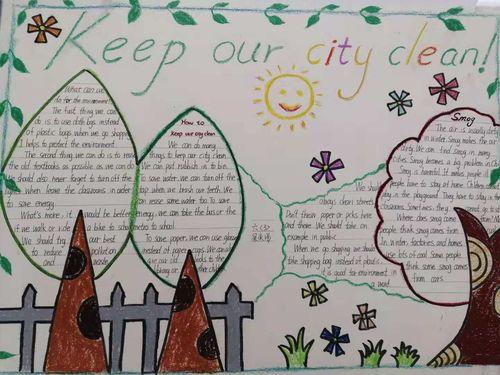 Keep our city clean!
What can we
do for the environment?
The first thing we can
do is to use cloth bags instead
of plastic bags when we go shopping.
I helps to protect the environment.
The second thing we can do is to reuse
the old textbooks as possible as we can do.
We should also never forget to turn off the
lights when leave the classrooms in order
to save energy.
What's more, it would be better
if we walk or ride a bike to school
We should try our best
to reduce pollution
and waste.
How to
keep our city clean
We can do many
things to keep our city clean.
We can put rubbish in to bin.
To save water, we can turn off the
tap when we brush our teeth. We
can reuse some water too. To save
energy, we can take the bus or the
metro to school.
To save paper, we can use glass
instead of paper cups. We can
give old books to the
other children
六(3)
We should
always clean streets.
Don't throw papers or picks here
and there. We should take an
example in public.
When we go shopping, we should
take shopping bag instead of plastic.
it is good for environment in
a word.
Smog
The air is usually dirty
in winter. Smog makes the air
dirty. We can find smog in many
cities. Smog becomes a big problem.
Smog is harmful. It makes people ill.
People have to stay at home. Children can't
play in the playground. They have to stay in the
classrooms. Sometimes, they
Where does smog come
people think smog comes from
In winter, factories and homes
use lots of coal. Some people
think some smog comes
from cars.